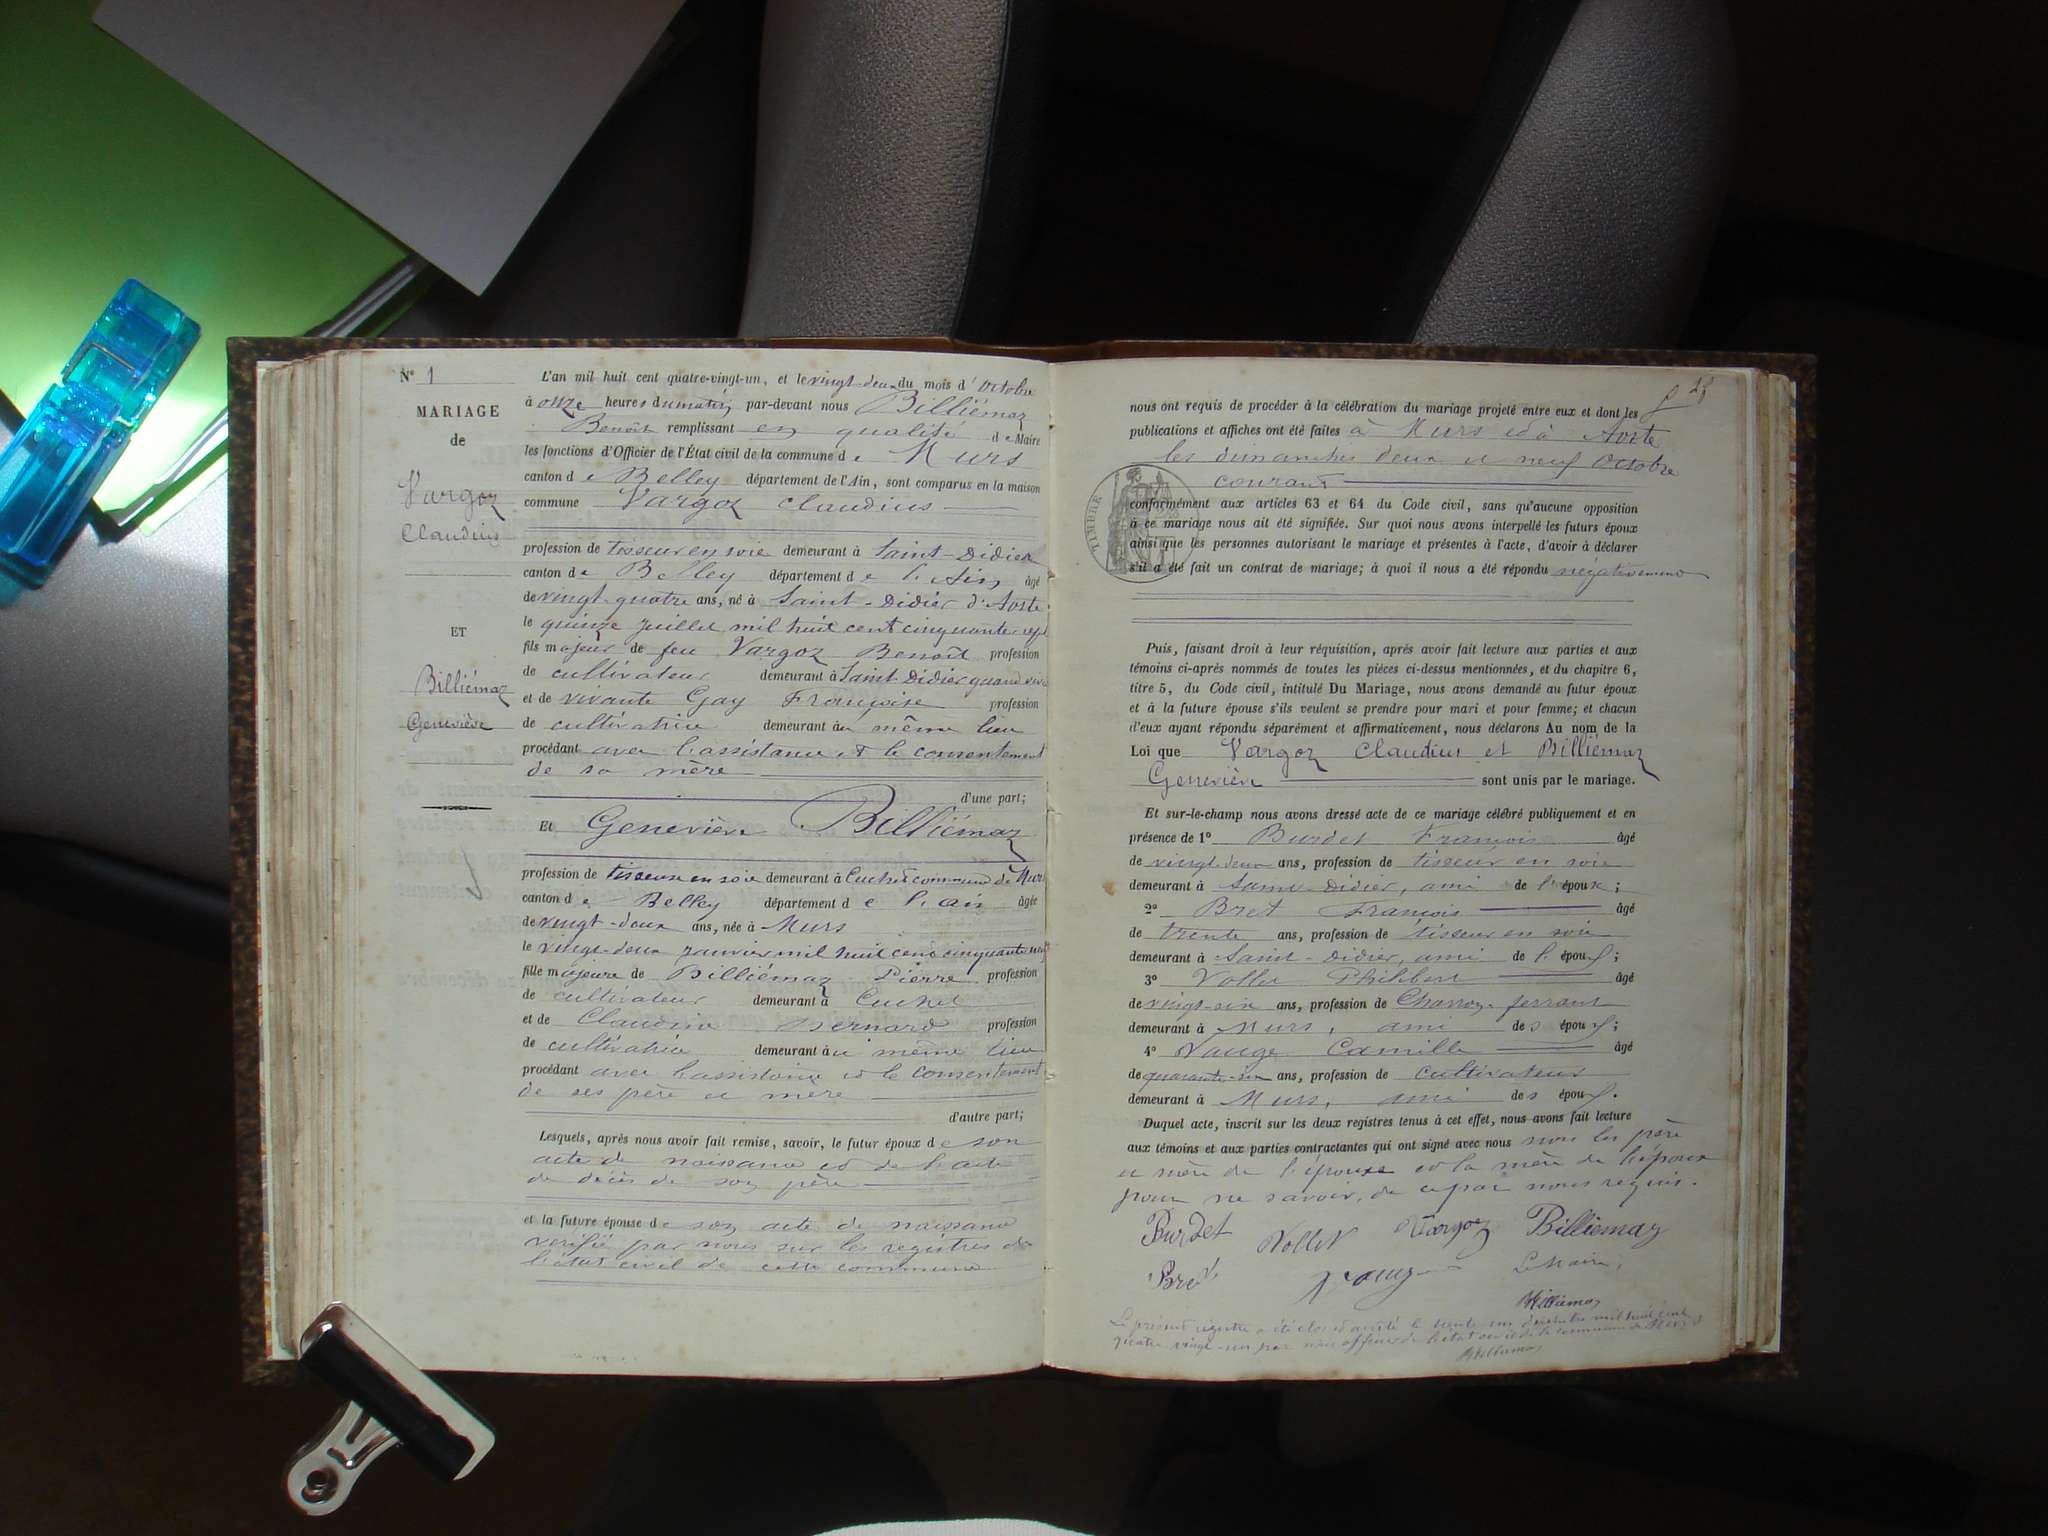 Nº 1
MARIAGE
de
Vargoz
Claudius
ET
Billiémaz
Geneviève
L'an mil huit cent quatre-vingt-un, et le vingt-deux du mois d'octobre
à onze heures du matin par-devant nous Billiémaz
Benoît remplissant en qualité de Maire
les fonctions d'Officier de l'État civil de la commune de Murs
canton de Belley département de l'Ain, sont comparus en la maison
commune Vargoz Claudius
profession de tisseur en soie demeurant à Saint-Didier
canton de Belley département de l'Ain âgé
de vingt-quatre ans, né à Saint-Didier d'Aoste
le quinze juillet mil huit cent cinquante-sept
fils majeur de feu Vargoz Benoît profession
de cultivateur demeurant à Saint-Didier quand viv
et de vivante Gay Françoise profession
de cultivatrice demeurant au même lieu
procédant avec l'assistance et le consentement
de sa mère
d'une part;
Et Geneviève Billiémaz
profession de tisseuse en soie demeurant à Cuchet commune de Murs
canton de Belley département de l'ain âgée
de vingt-deux ans, née à Murs
le vingt-deux janvier mil huit cent cinquante neuf
fille majeure de Billiémaz Pierre profession
de cultivateur demeurant à Cuchet
et de Claudine Bernard profession
de cultivatrice demeurant au même lieu
procédant avec l'assistance et le consentement
de ses père et mère
d'autre part;
Lesquels, après nous avoir fait remise, savoir, le futur époux de son
acte de naissance et de l'acte
de décès de son père
et la future épouse de son acte de naissance
vérifié par nous sur les registres de
l'état civil de cette commune
28
nous ont requis de procéder à la célébration du mariage projeté entre eux et dont les
publications et affiches ont été faites à Murs et à Aoste
les dimanches deux et neuf octobre
courant
TIMBRE
conformément aux articles 63 et 64 du Code civil, sans qu'aucune opposition
à ce mariage nous ait été signifiée. Sur quoi nous avons interpellé les futurs époux
ainsi que les personnes autorisant le mariage et présentes à l'acte, d'avoir à déclarer
s'il a été fait un contrat de mariage; à quoi il nous a été répondu négativement
Puis, faisant droit à leur réquisition, après avoir fait lecture aux parties et aux
témoins ci-après nommés de toutes les pièces ci-dessus mentionnées, et du chapitre 6,
titre 5, du Code civil, intitulé Du Mariage, nous avons demandé au futur époux
et à la future épouse s'ils veulent se prendre pour mari et pour femme; et chacun
d'eux ayant répondu séparément et affirmativement, nous déclarons Au nom de la
Loi que Vargoz Claudius et Billiémaz
Geneviève sont unis par le mariage.
Et sur-le-champ nous avons dressé acte de ce mariage célébré publiquement et en
présence de 1º Burdet François âgé
de vingt-deux ans, profession de tisseur en soie
demeurant à Saint-Didier, ami de l'époux;
2º Bret François âgé
de trente ans, profession de tisseur en soie
demeurant à Saint-Didier, ami de l'époux;
3º Vollet Philibert âgé
de vingt-six ans, profession de Charron-ferrant
demeurant à Murs, ami des époux;
4º Vauge Camille âgé
de quarante-six ans, profession de cultivateur
demeurant à Murs, ami des époux.
Duquel acte, inscrit sur les deux registres tenus à cet effet, nous avons fait lecture
aux témoins et aux parties contractantes qui ont signé avec nous non les père
et mère de l'épouse et la mère de l'époux
pour ne savoir, de ce par nous requis.
Burdet Vollet Vargoz Billiemaz
Bret Vauge Le Maire,
Billiemaz
Le présent registre a été clos et arrêté le trente-un décembre mil huit cent
quatre vingt-un par nous officier de l'état civil de la commune de Murs
Billiemaz